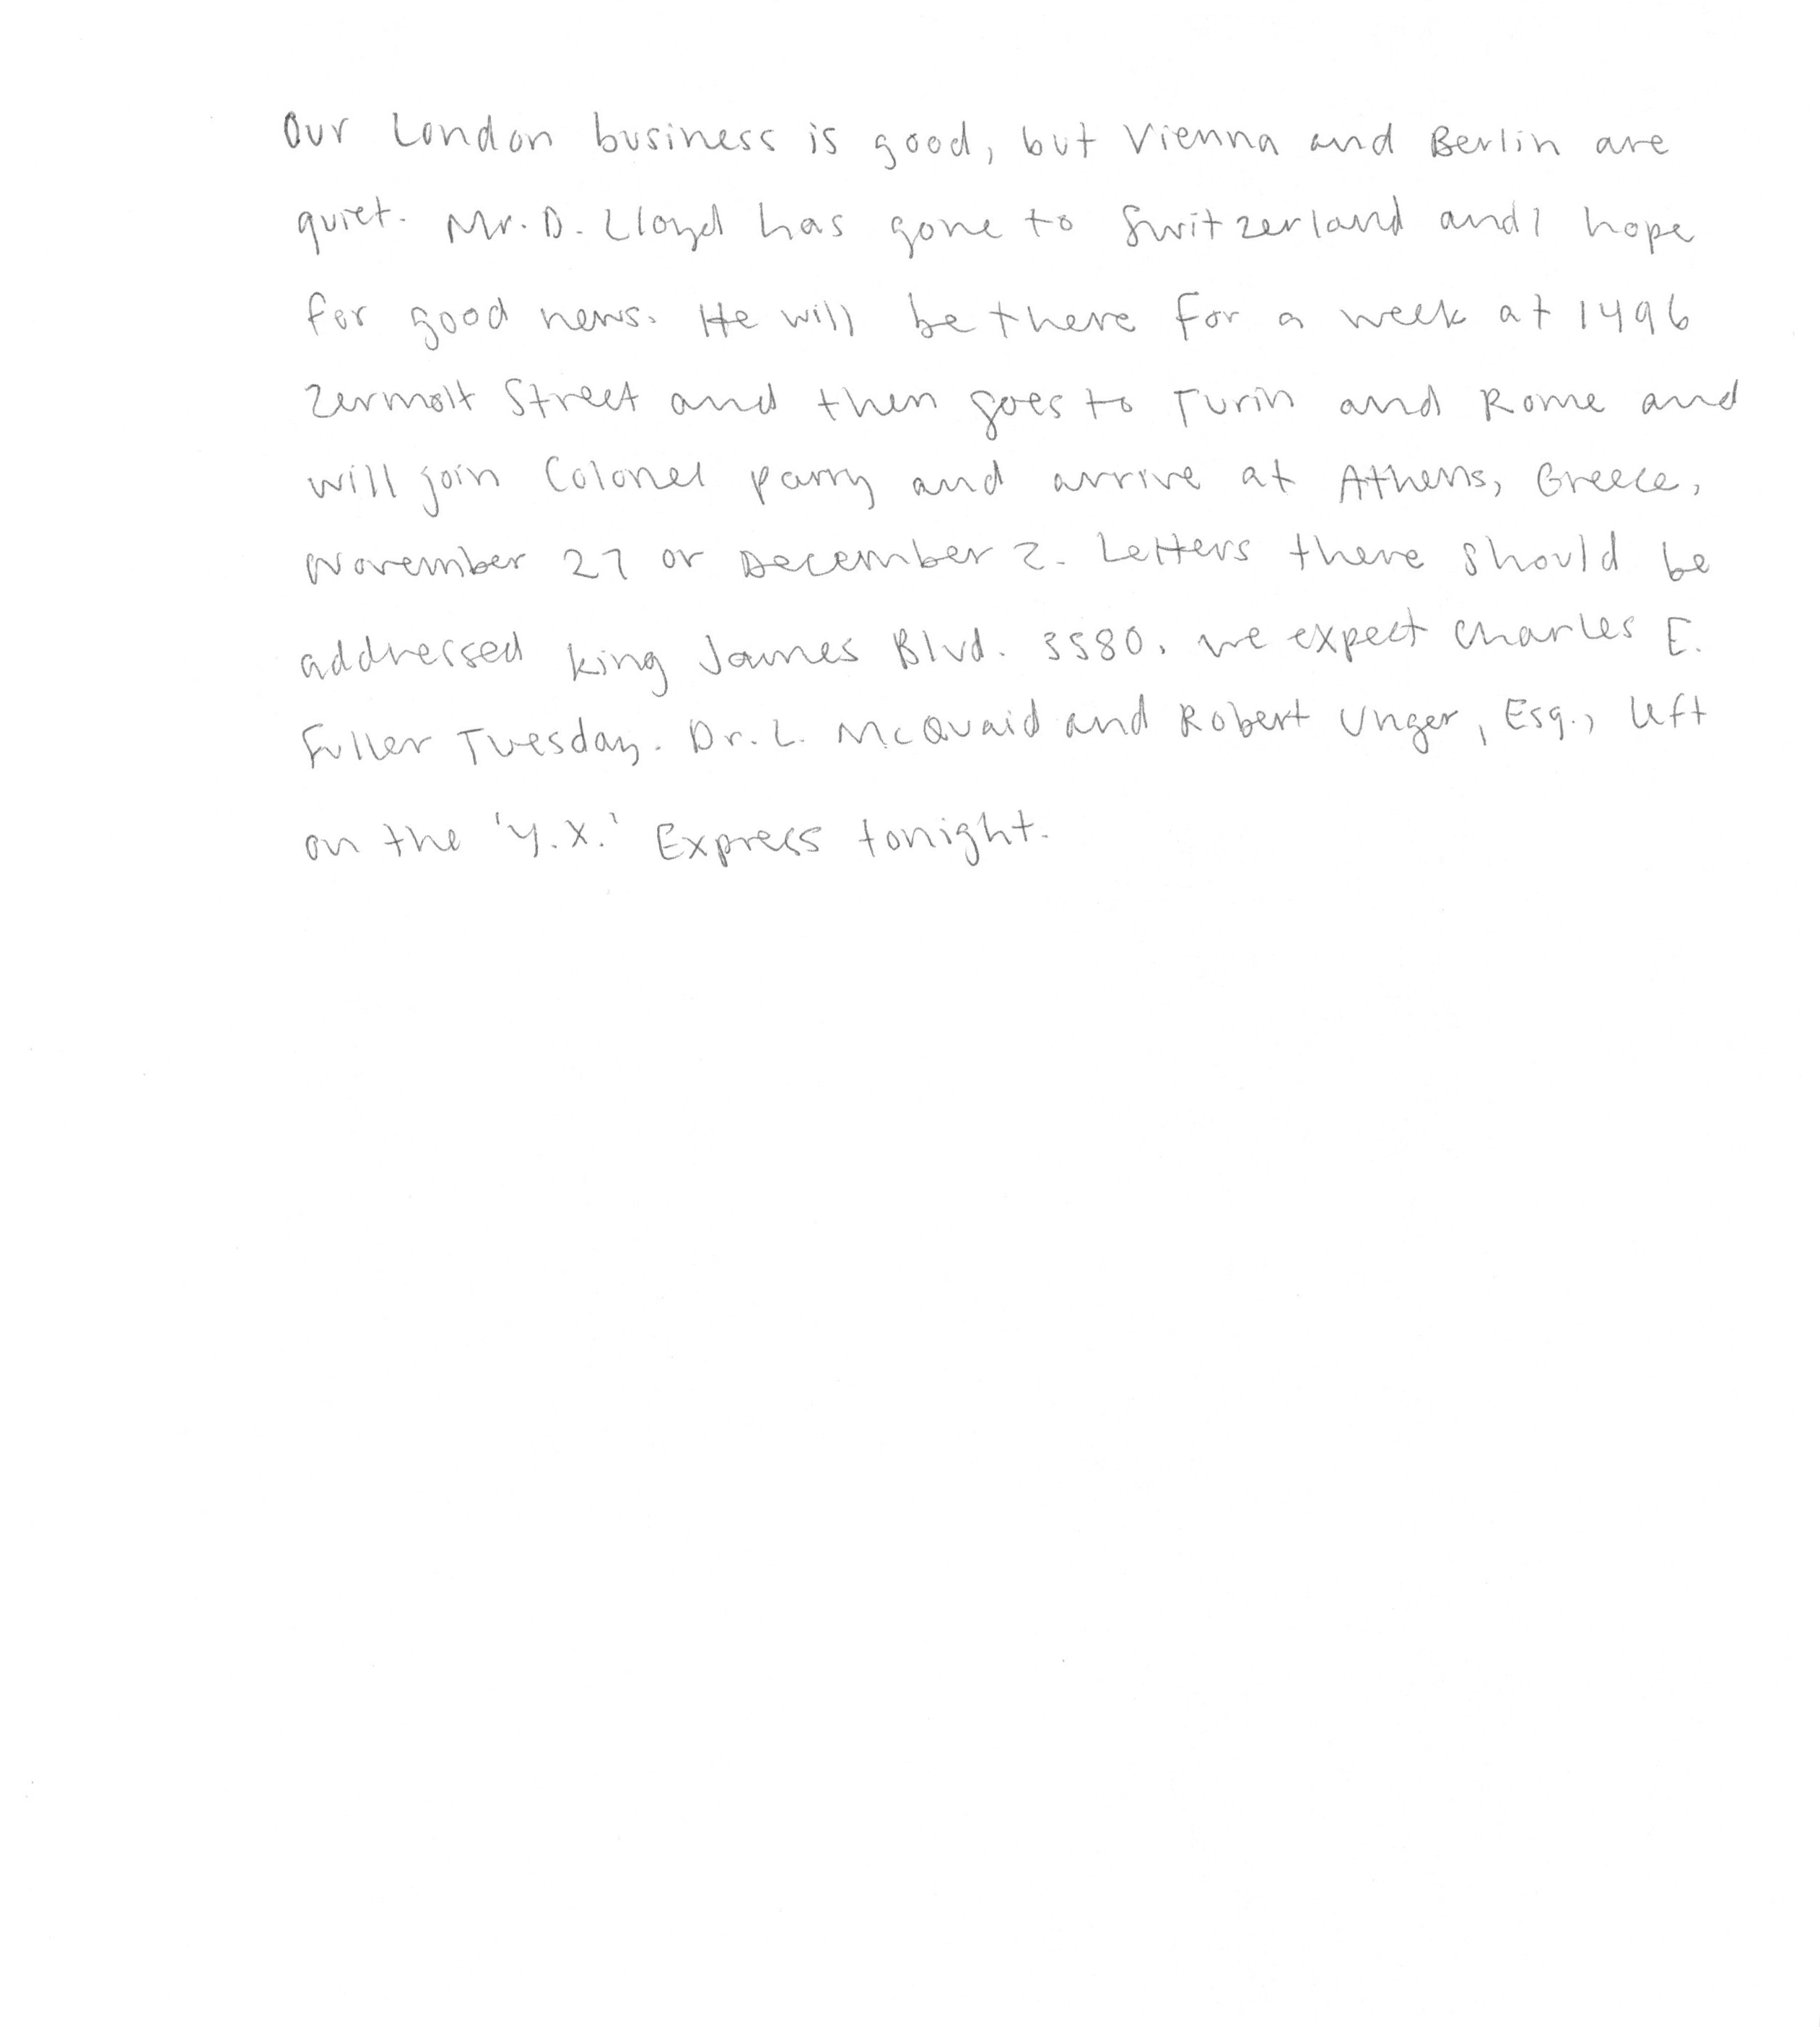 Our London business is good, but Vienna and Berlin are
quiet. Mr. D. Lloyd has gone to Switzerland and I hope
for good news. He will be there for a week at 1496
Zermott Street and then goes to Turin and Rome and
will join Colonel Parry and arrive at Athens, Greece,
November 27 or December 2. Letters there should be
addressed King James Blvd. 3580. We expect Charles E.
Fuller Tuesday. Dr. L. McQuaid and Robert Unger, Esq., left
on the 'Y.X.' Express tonight.